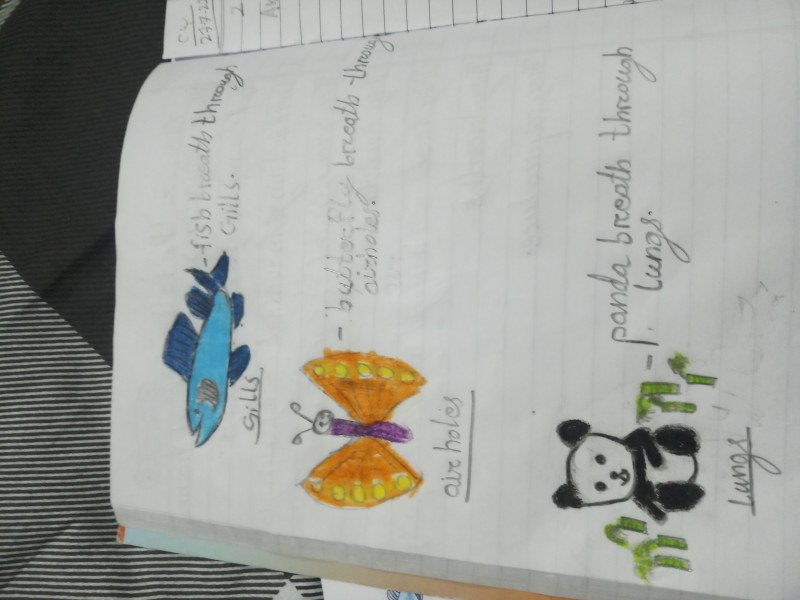 Gills
-fish breath through
Gills.
air holes
- butter-fly breath through
airholes.
Lungs
- panda breath through
Lungs.
2